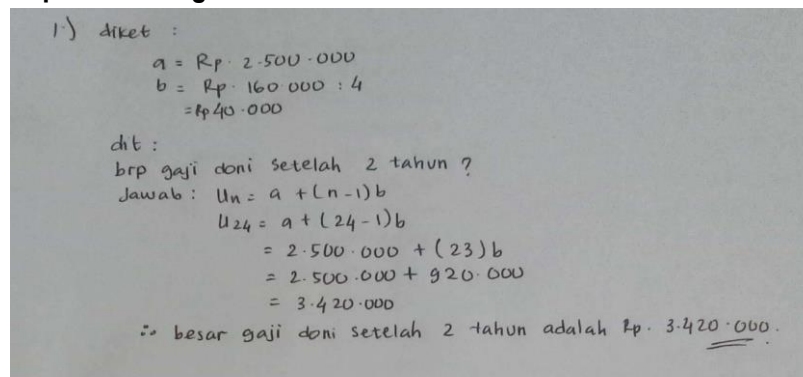 1.) diket :
a = Rp. 2.500.000
b = Rp. 160.000 : 4
= Rp 40.000
dit :
brp gaji doni setelah 2 tahun ?
Jawab : Un = a + (n-1)b
U24 = a + (24-1)b
= 2.500.000 + (23)b
= 2.500.000 + 920.000
= 3.420.000
∴ besar gaji doni setelah 2 tahun adalah Rp. 3.420.000.